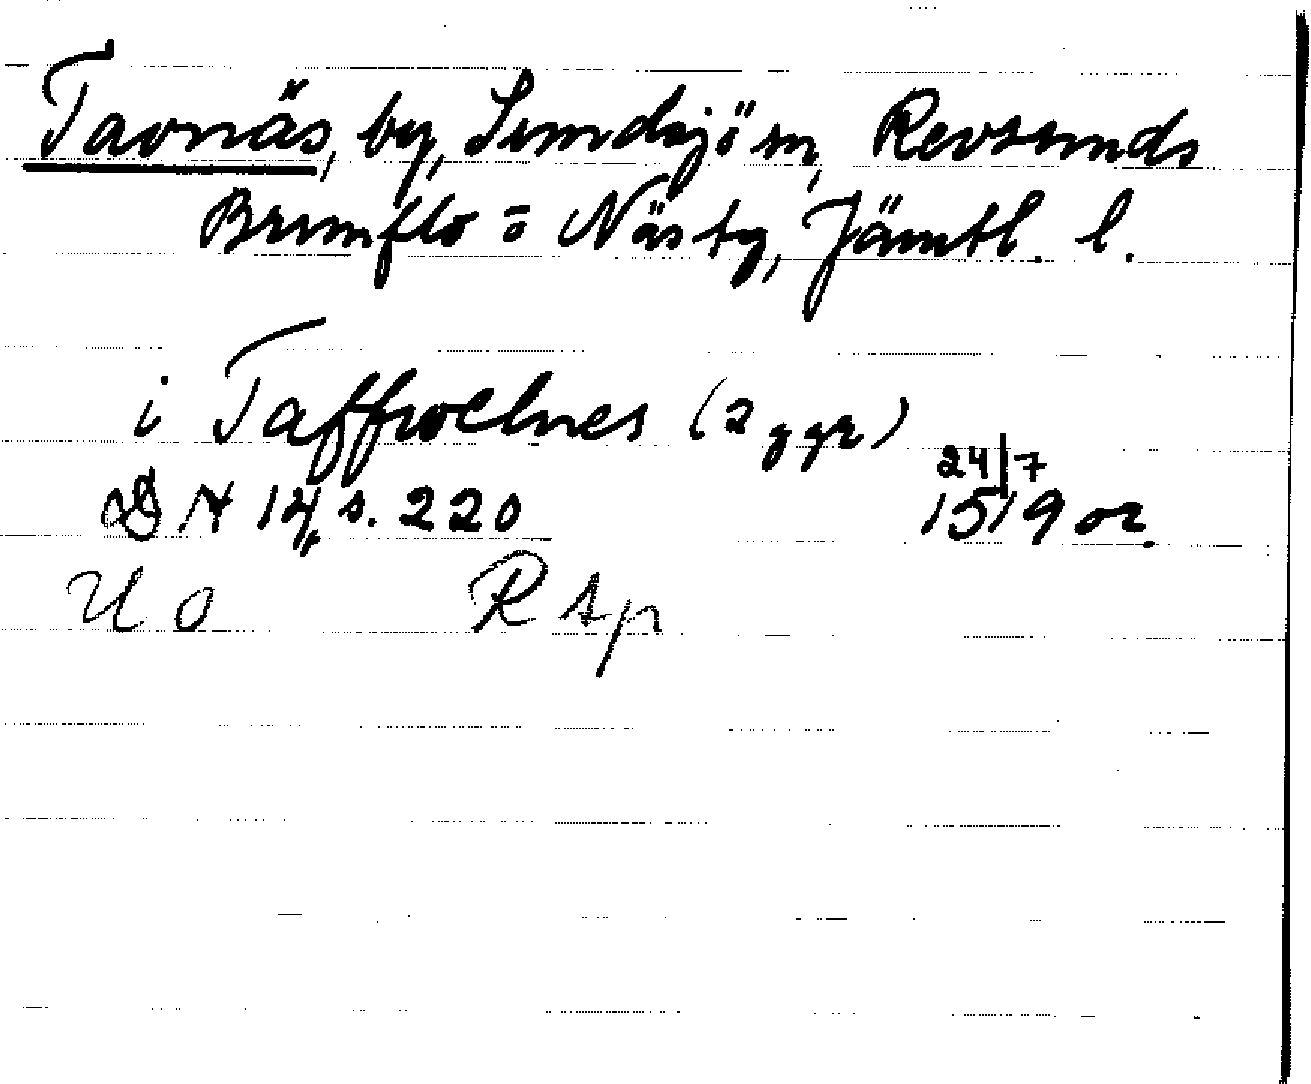 Tavnäs, by, Sundsjö sn, Revsunds
Brunflo o Näs tg, Jämtl. l.
i Taffwelnes (2 ggr)
24/7
DN 14, s. 220 1519 or.
U o R sp